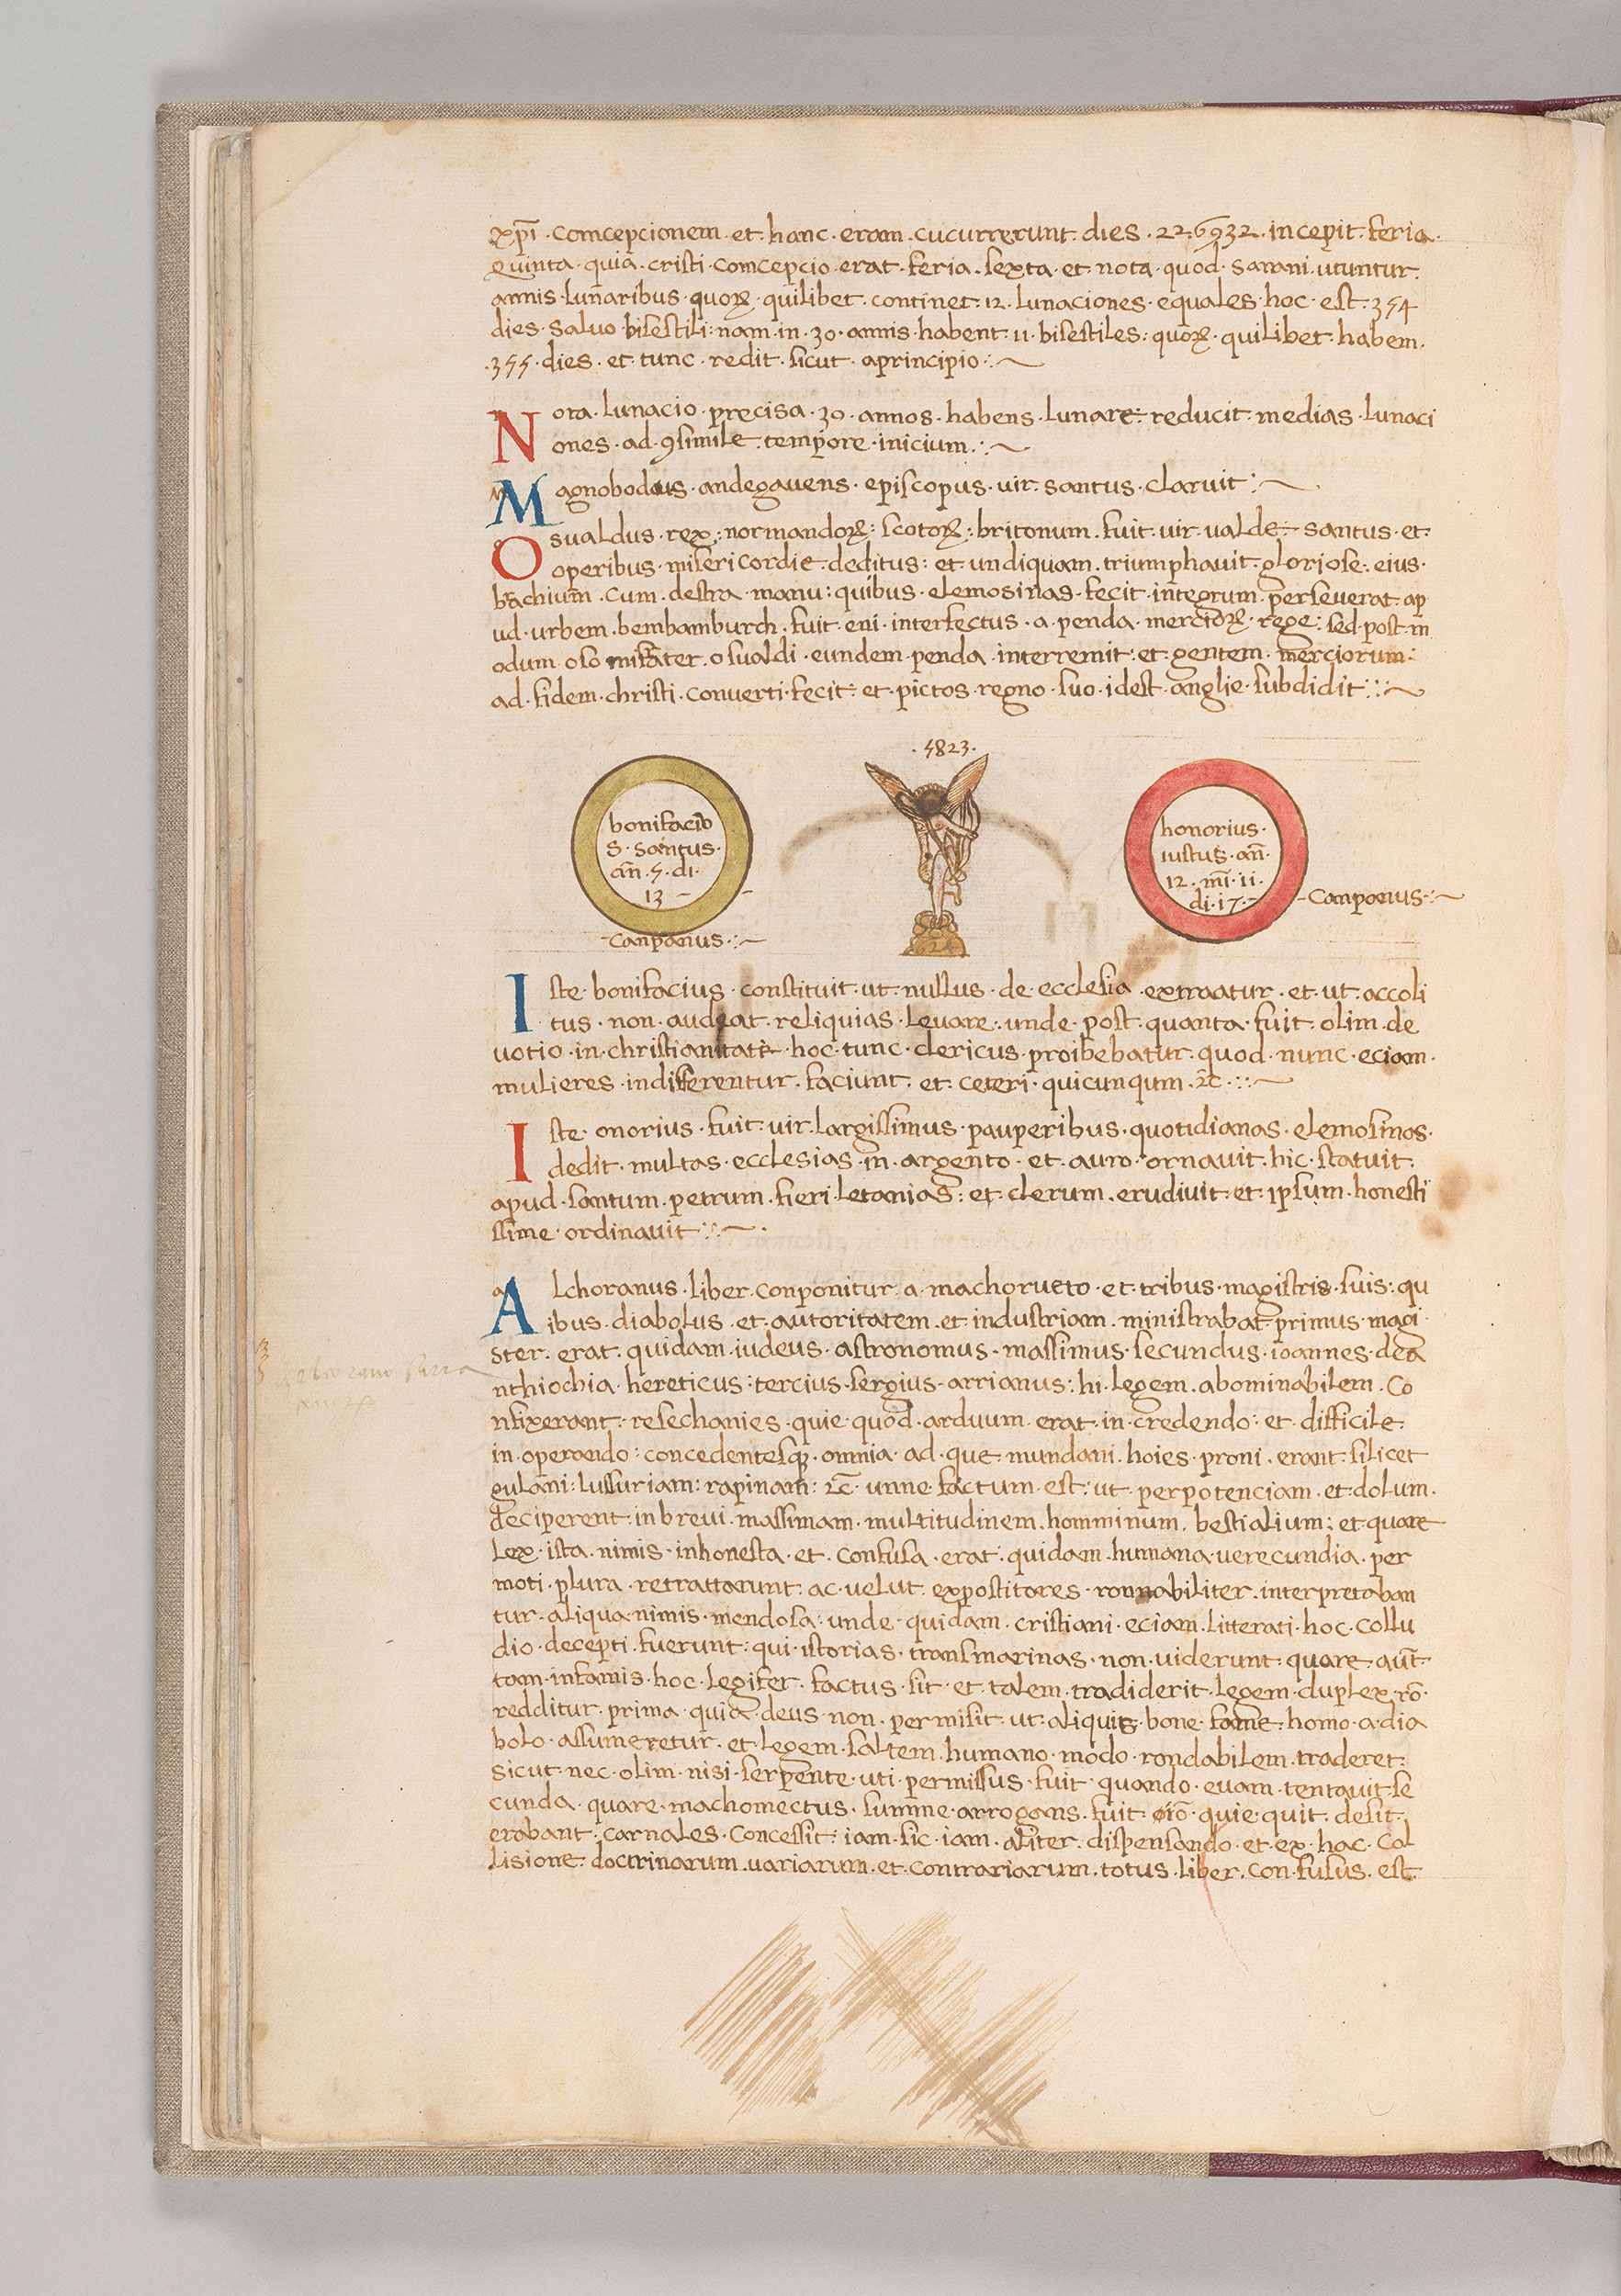 xp̄i · comcepcionem · et · hanc · eram · cucurrerunt · dies · 22 · 6932 · incepit · feria ·
quinta · quia · cristi · comcepcio · erat · feria · sexta · et · nota · quod · sarani · utuntur ·
annis · lunaribus · quoꝝ · quilibet · continet · 12 · lunaciones · equales · hoc · est · 354
dies · saluo · bisestili : nam · in · 30 · annis · habent · 11 · bisestiles : quoꝝ · quilibet · habem ·
· 355 · dies · et · tunc · redit · sicut · aprincipio :~
Nota · lunacio · precisa · 30 · annos · habens · lunare · reducit · medias · lunaci
ones · ad · ꝯsimile · tempore · inicium :~
Magnobodeus · andegauens · episcopus · uir · santus · claruit :~
Osualdus · rex : normandoꝝ : scotoꝝ : britonum · fuit · uir · ualde · santus · et ·
operibus · misericordie · deditus : et · undiquam · triumphauit · gloriose · eius ·
brachium · cum · destra · manu : quibus · elemosinas · fecit · integrum · perseuerat · ap
ud · urbem · bembamburch · fuit · eni · interfectus · a · penda · mercioꝝ · rege : sed · post · m
odum · oso · frater · osualdi · eundem · penda · interremit · et · gentem · merciorum :
ad · fidem · christi · conuerti · fecit : et · pictos · regno · suo · idest · anglie · subdidit :~
· 5823 ·
bonifacio
5 · santus ·
an̄ · 5 · di ·
13 -
- canpanus :~
624
honorius ·
iustus · an̄ ·
12 · m̄i · 11 ·
di · 17 ·
- Campanus :~
Iste · bonifacius · constituit · ut · nullus · de · ecclesia · extraatur · et · ut · accoli
tus · non · audeat · reliquias · leuare · unde · post · quanta · fuit · olim · de
uotio · in · christianitate · hoc · tunc · clericus · proibebatur · quod · nunc · eciam ·
mulieres · indifferentur · faciunt · et · ceteri · quicunqum · ⁊c̄ :~
Iste · onorius · fuit · uir · largissimus · pauperibus · quotidianas · elemosinas ·
dedit · multas · ecclesias · in · argento · et · auro · ornauit · hic · statuit ·
apud · santum · petrum · fieri · letanias : et · clerum · erudiuit · et · ipsum · honesti
ssime · ordinauit :~
Alchoranus · liber · conponitur · a · machorueto · et · tribus · magistris · suis : qu
ibus · diabolus · et · autoritatem · et · industriam · ministrabat · primus · magi
ster · erat · quidam · iudeus · astronomus · massimus · secundus · ioannes · dea
nthiochia · hereticus : tercius · sergius · arrianus : hi · legem · abominabilem · co
nfixerant · resechanies · quie · quod · arduum · erat · in · credendo : et · difficile ·
in · operando : concedentesqꝫ · omnia · ad · que · mundani · hoies · proni · erant · silicet
gulani : lussuriam : rapinam : ⁊c̄ · unne · factum · est : ut · perpotenciam · et · dolum ·
deciperent · in breui · massimam · multitudinem · homminum · bestialium : et · quare
lex · ista · nimis · inhonesta · et · confusa · erat · quidam · humana · uerecundia · per
moti · plura · retrattarunt · ac · uelut · expostitores · ronnabiliter · interpretaban
tur · aliqua · nimis · mendosa : unde · quidam · cristiani · eciam · litterati · hoc · collu
dio · decepti · fuerunt : qui · istorias · transmarinas · non · uiderunt · quare · aūt
tam · infamis · hoc · legifer · factus · sit · et · talem · tradiderit · legem · duplex · rō ·
redditur · prima · quia · deus · non · permisit · ut · aliquis · bone · fame · homo · a · dia
bolo · assumeretur · et · legem · saltem · humano · modo · rondabilem · traderet ·
sicut · nec · olim · nisi · serpente · uti · permissus · fuit · quando · euam · tentauit · se
cunda · quare · machomectus · summe · arrogans · fuit · quie · quit · desit
erabant · carnales · concessit · iam · sic · iam · aliter · dispensando · et · ex · hac · col
lisione · doctrinarum · uariarum · et · contrariarum · totus · liber · confusus · est ·